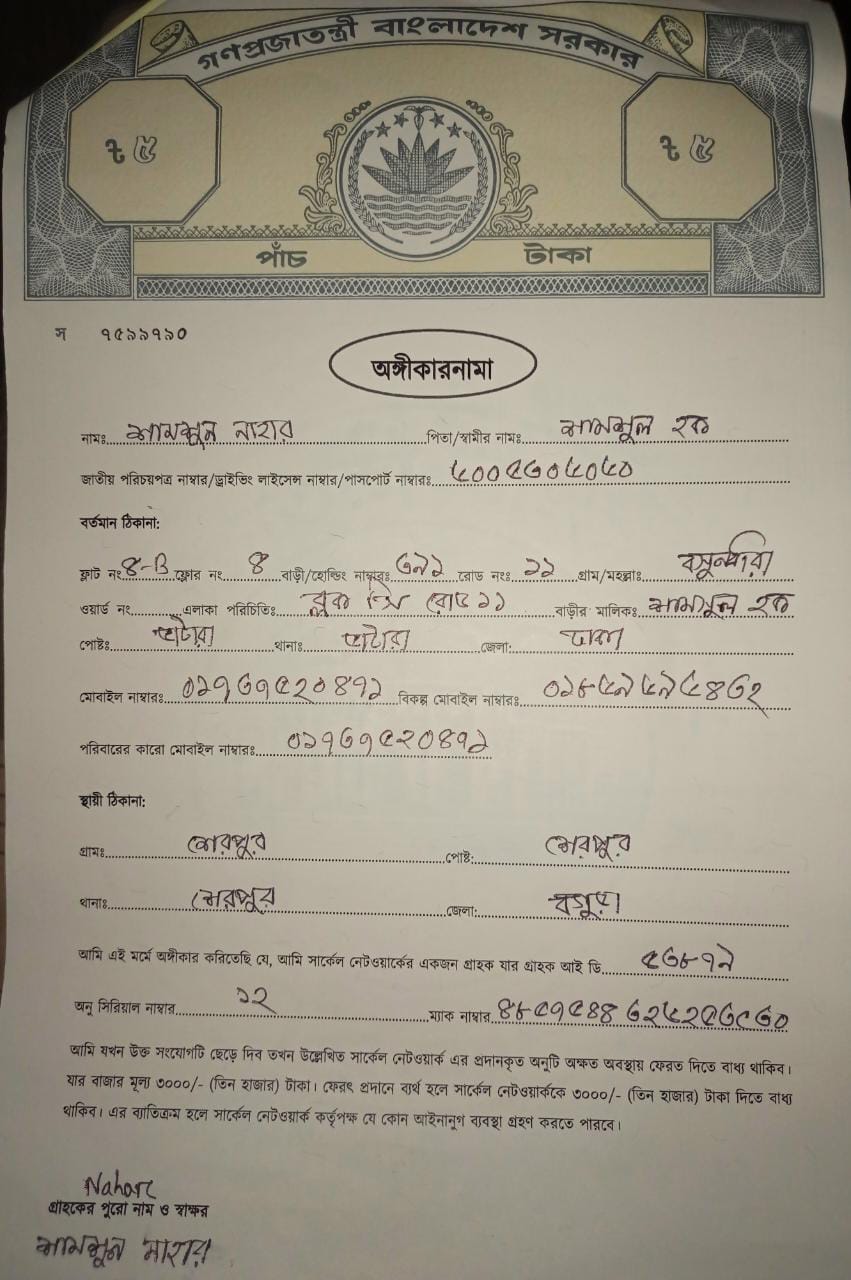 গণপ্রজাতন্ত্রী বাংলাদেশ সরকার
৳ ৫ ৳ ৫
পাঁচ টাকা
স ৭৫৯৯৭৯০
অঙ্গীকারনামা
নামঃ শামসুন নাহার পিতা/স্বামীর নামঃ শামসুল হক
জাতীয় পরিচয়পত্র নাম্বার/ড্রাইভিং লাইসেন্স নাম্বার/পাসপোর্ট নাম্বারঃ ৬০০৫৩০৬০৬০
বর্তমান ঠিকানা:
ফ্লাট নং ৪-B ফ্লোর নং ৪ বাড়ী/হোল্ডিং নাম্বারঃ ৩৯১ রোড নংঃ ১১ গ্রাম/মহল্লাঃ বসুন্ধরা
ওয়ার্ড নং এলাকা পরিচিতিঃ ব্লক রোড ১১ বাড়ীর মালিকঃ শামসুল হক
পোষ্টঃ ভাটারা থানাঃ ভাটারা জেলা: ঢাকা
মোবাইল নাম্বারঃ ০১৭৩৭৫২০৪৭১ বিকল্প মোবাইল নাম্বারঃ
পরিবারের কারো মোবাইল নাম্বারঃ ০১৭৩৭৫২০৪৭১
স্থায়ী ঠিকানা:
গ্রামঃ শেরপুর পোষ্ট: শেরপুর
থানাঃ শেরপুর জেলা: বগুড়া
আমি এই মর্মে অঙ্গীকার করিতেছি যে, আমি সার্কেল নেটওয়ার্কের একজন গ্রাহক যার গ্রাহক আই ডি ৫৩৮৭৯
অনু সিরিয়াল নাম্বার ১২ ম্যাক নাম্বার
আমি যখন উক্ত সংযোগটি ছেড়ে দিব তখন উল্লেখিত সার্কেল নেটওয়ার্ক এর প্রদানকৃত অনুটি অক্ষত অবস্থায় ফেরত দিতে বাধ্য থাকিব।
যার বাজার মূল্য ৩০০০/- (তিন হাজার) টাকা। ফেরৎ প্রদানে ব্যর্থ হলে সার্কেল নেটওয়ার্ককে ৩০০০/- (তিন হাজার) টাকা দিতে বাধ্য
থাকিব। এর ব্যতিক্রম হলে সার্কেল নেটওয়ার্ক কর্তৃপক্ষ যে কোন আইনানুগ ব্যবস্থা গ্রহণ করতে পারবে।
Nahar
গ্রাহকের পুরো নাম ও স্বাক্ষর
শামসুন নাহার